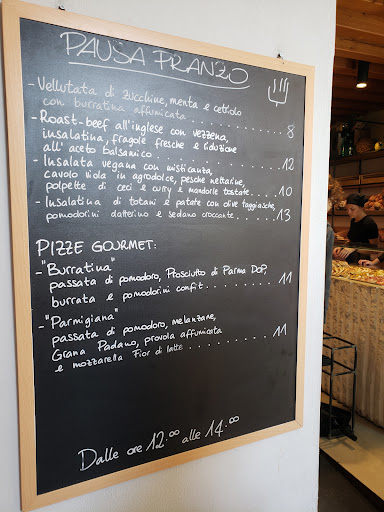 PAUSA PRANZO
- Vellutata di zucchine, menta e cetriolo
con burratina affumicata . . . . . . . . . 8
- Roast-beef all'inglese con vezzena,
insalatina, fragole fresche e riduzione
all'aceto balsamico . . . . . . . . . . . 12
- Insalata vegana con misticanza,
cavolo viola in agrodolce, pesche nettarine,
polpette di ceci e curry e mandorle tostate . . . . 10
- Insalatina di totani e patate con olive taggiasche,
pomodorini datterino e sedano croccante . . . . 13
PIZZE GOURMET:
- "Burratina"
passata di pomodoro, Prosciutto di Parma DOP,
burrata e pomodorini confit . . . . . . . . 11
- "Parmigiana"
passata di pomodoro, melanzane,
Grana Padano, provola affumicata
e mozzarella Fior di latte . . . . . . . . 11
Dalle ore 12:00 alle 14:00